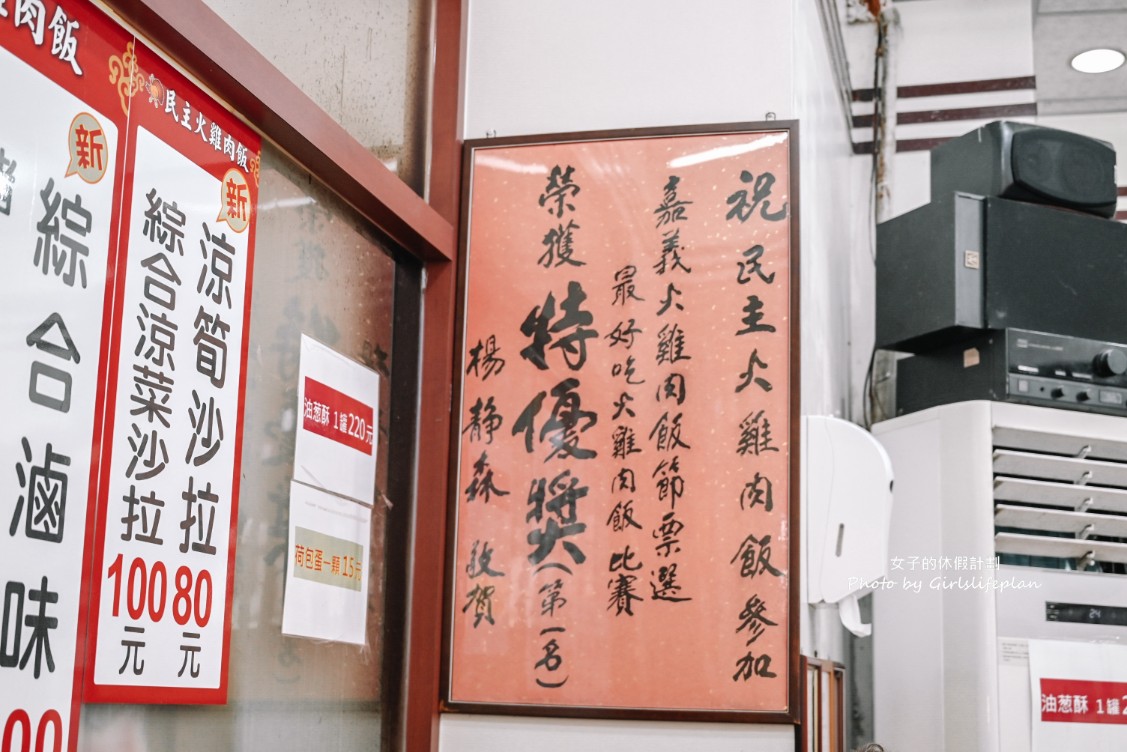 祝民主火雞肉飯參加
嘉義火雞肉飯節票選
最好吃火雞肉飯比賽
榮獲特優獎(第一名)
楊靜森敬賀
雞肉飯
新
綜合滷味
00
民主火雞肉飯
新
涼筍沙拉80元
綜合涼菜沙拉100元
油蔥酥 1罐220元
荷包蛋一顆15元
女子的休假計判
Photo by Girlslifeplan
油蔥酥 1罐2